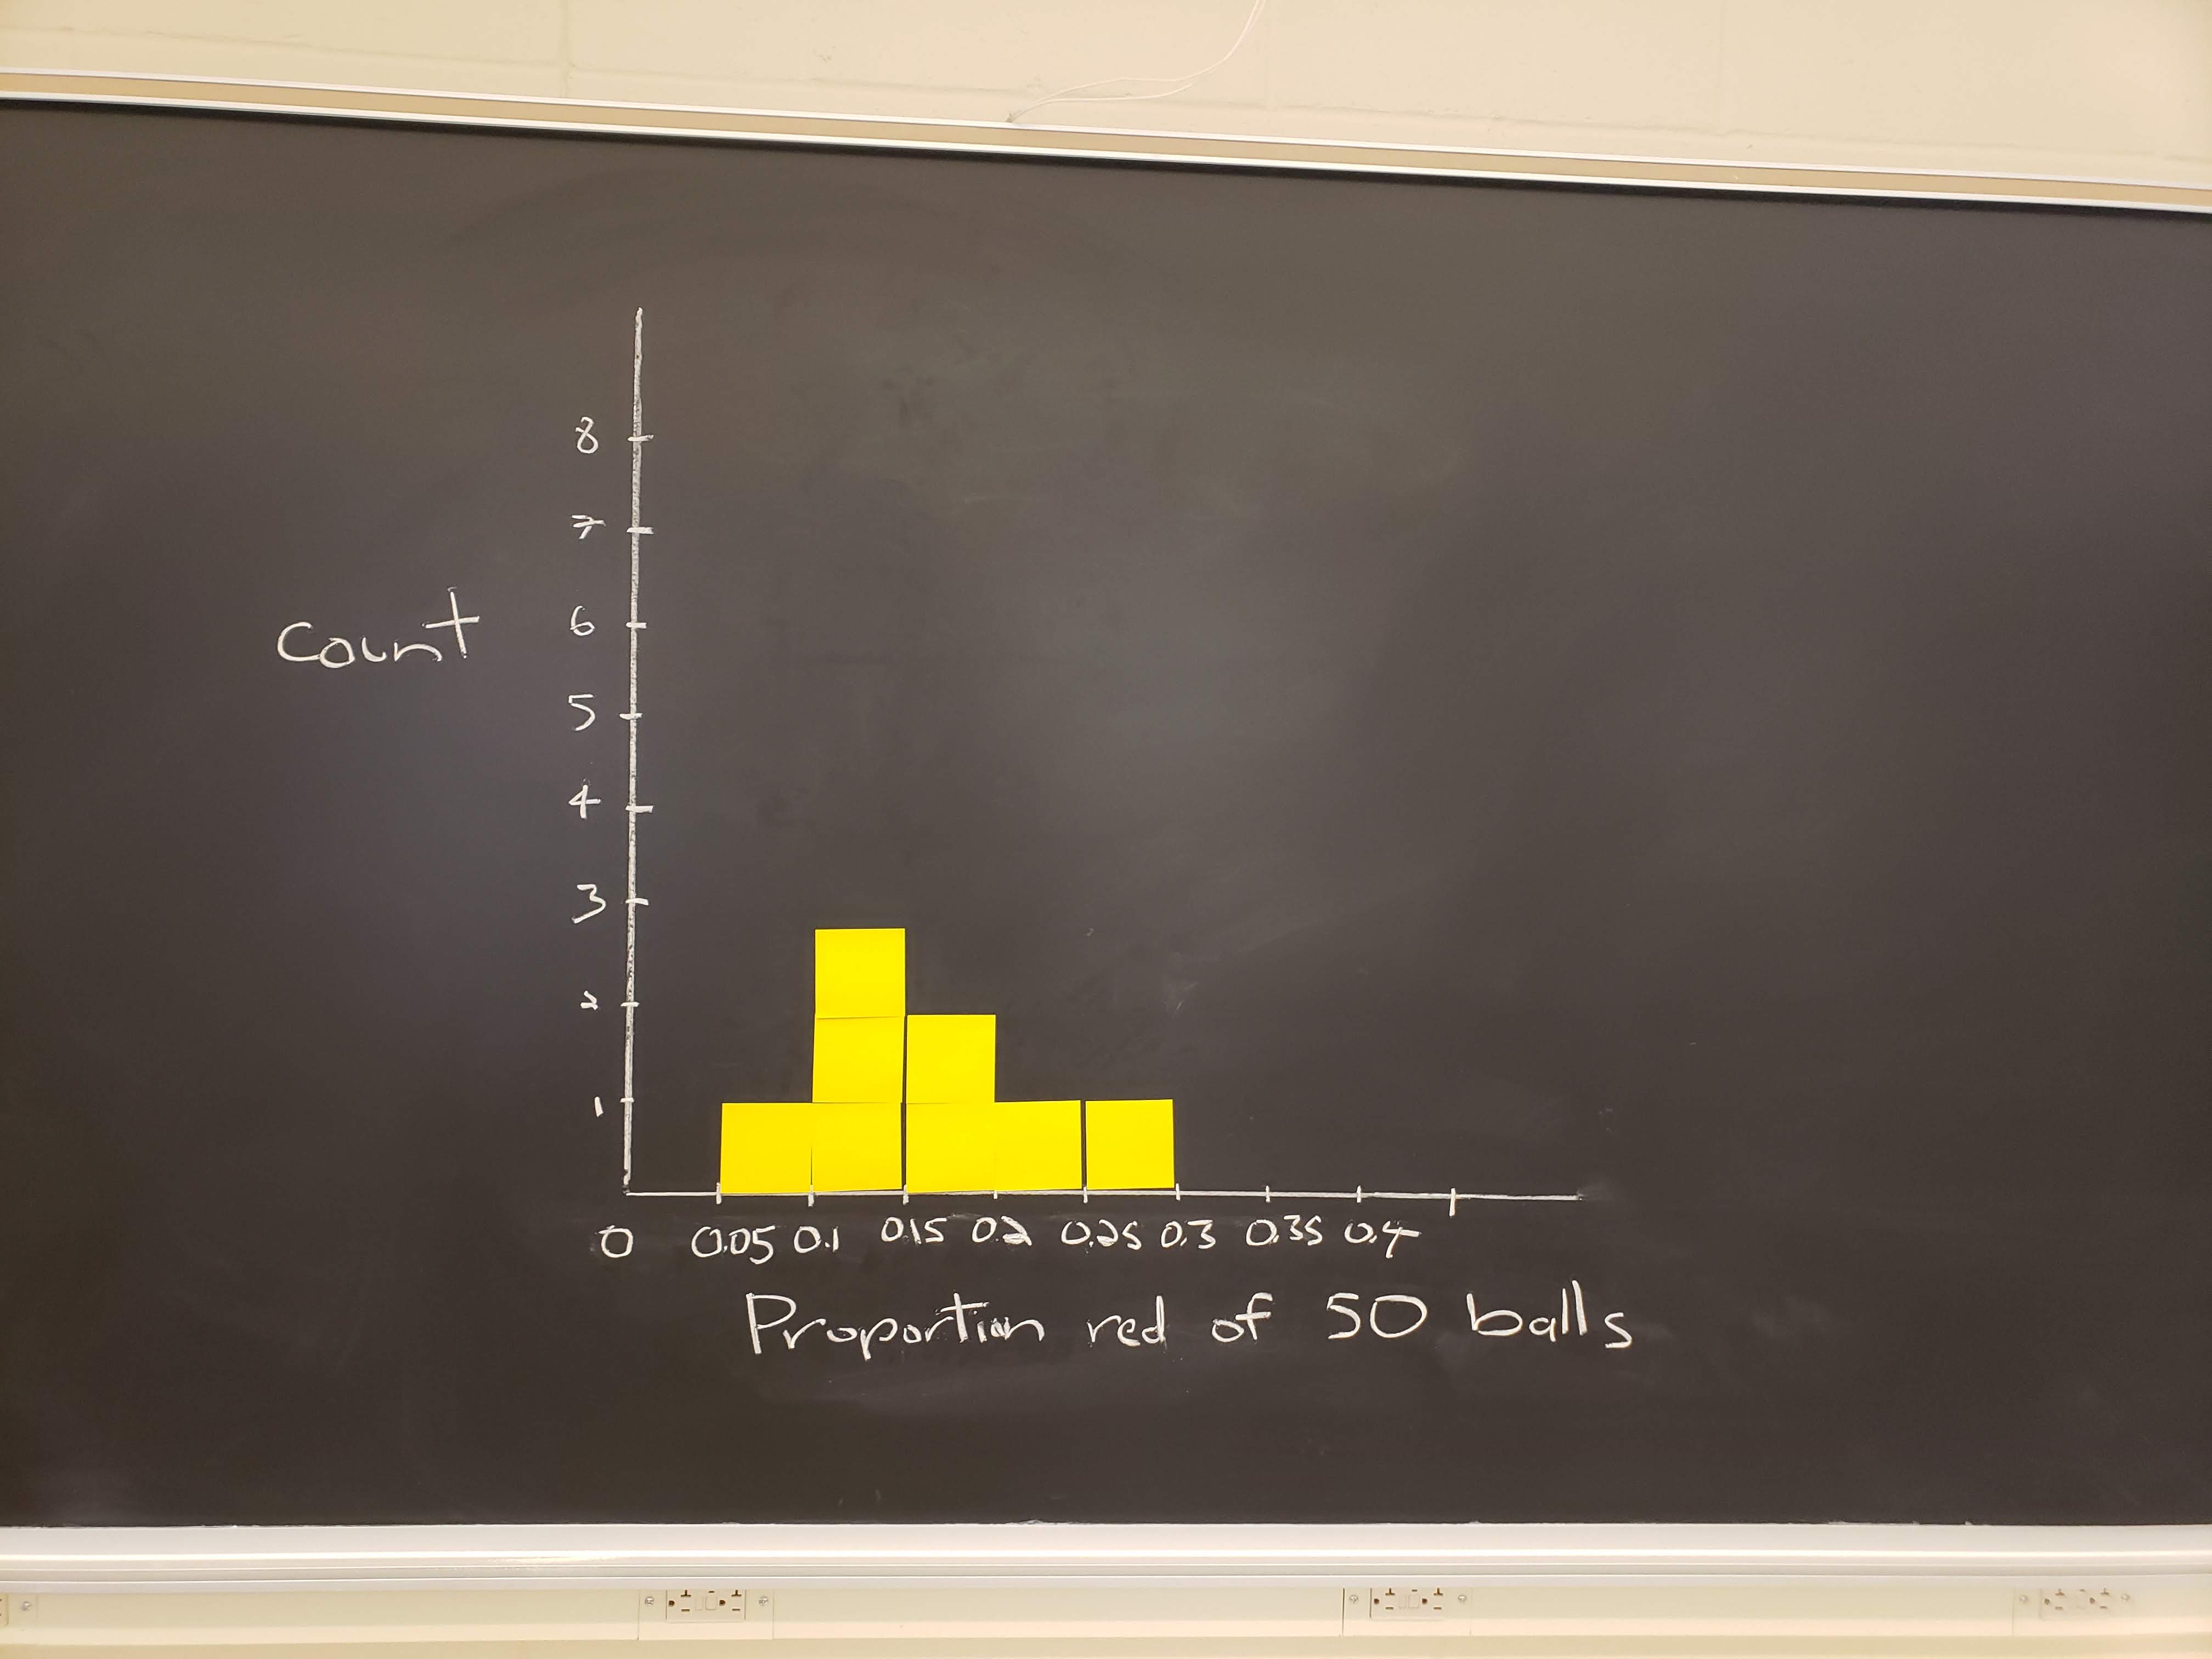 8
7
6
Count
5
4
3
2
1
0 0.05 0.1 0.15 0.2 0.25 0.3 0.35 0.4
Proportion red of 50 balls